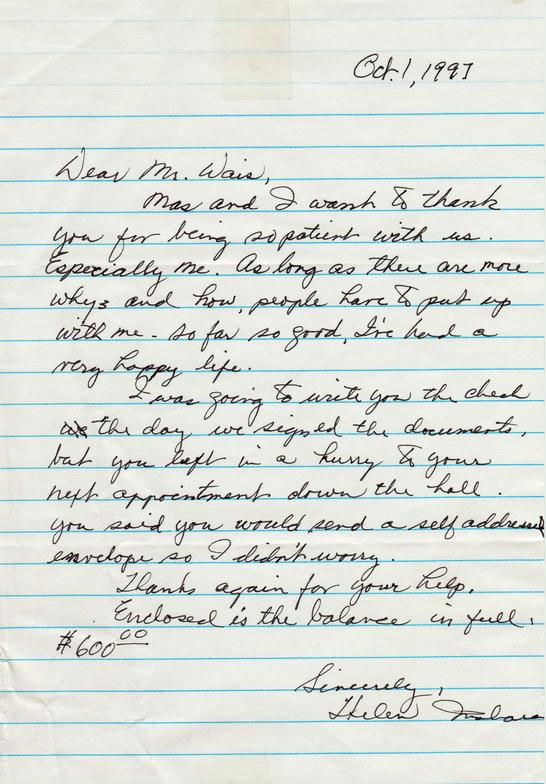 Oct. 1, 1997
Dear Mr. Wais,
Mas and I want to thank
you for being so patient with us.
Especially me. As long as there are more
whys and how, people have to put up
with me - so far so good, I've had a
very happy life.
I was going to write you the check
the day we signed the documents,
but you left in a hurry to your
next appointment down the hall.
you said you would send a self addressed
envelope so I didn't worry.
Thanks again for your help.
Enclosed is the balance in full.
$600.00
Sincerely,
Helen